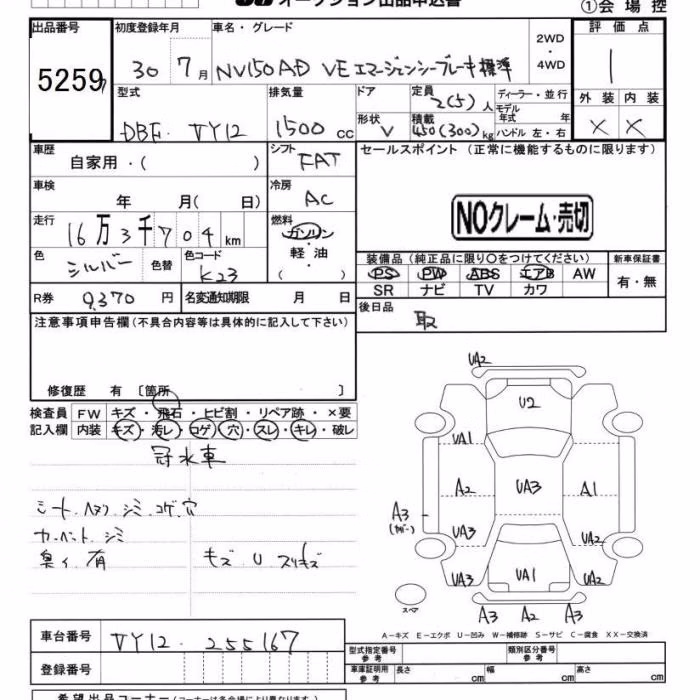 オークション出品申込書
①会場控
出品番号
5259
初度登録年月
30年7月
車名・グレード
NV150AD VE エマージェンシーブレーキ 標準
2WD・4WD
評価点
1
外装 内装
× ×
型式
DBF-VY12
排気量
1500cc
ドア
形状
V
定員
2(5)人
積載
450(300)kg
ディーラー・並行
モデル年式 年
ハンドル 左・右
車歴
自家用・( )
シフト
FAT
車検
年 月( 日)
冷房
AC
走行
16万3千704km
燃料
ガソリン・軽油・( )
色
シルバー
色替
色コード
K23
R券
9,370円
名変通知期限 月 日
セールスポイント (正常に機能するものに限ります)
NOクレーム・売切
装備品(純正品に限り○をつけてください)
PS PW ABS エアB AW
SR ナビ TV カワ
新車保証書
有・無
後日品
取
注意事項申告欄(不具合内容等は具体的に記入して下さい)
修復歴 有〔箇所 〕
検査員記入欄
FW キズ・飛石・ヒビ割・リペア跡・×要
内装 キズ・汚レ・コゲ・穴・スレ・キレ・破レ
冠水車
シミ・コゲ・穴
シミ
臭イ 有
キズ U スリキズ
UA2
U2
UA1
A2 UA3 A1
A3
(カバー)
UA3 UA2
UA3 UA1 UA2
スペア
A3 A2 A3
A-キズ E-エクボ U-凹み W-補修跡 S-サビ C-腐食 XX-交換済
車台番号
VY12-255167
登録番号
型式指定番号 参考
類別区分番号 参考
車庫証明用 参考
長さ cm 幅 cm 高さ cm
希望出品コーナー(コーナーは各会場により異なります)